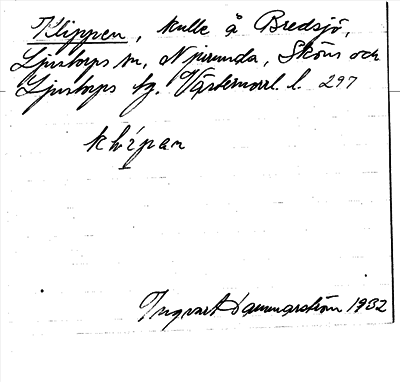 Klippen, kulle å Bredsjö,
Ljustorps sn, Njurunda, Sköns och
Ljustorps tg. Västernorrl. l. 297
Ingvart Dammarström 1932